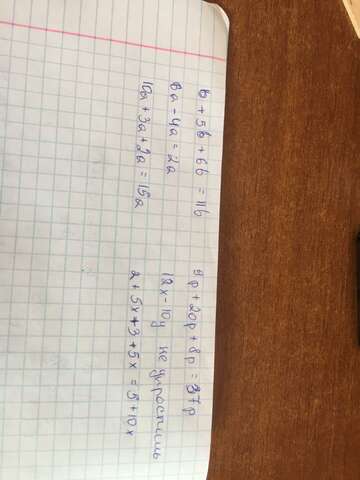 b + 5b + 6b = 11b
6a - 4a = 2a
10a + 3a + 2a = 15a
9p + 20p + 8p = 37p
18x - 10y не упростишь
2 + 5x + 3 + 5x = 5 + 10x